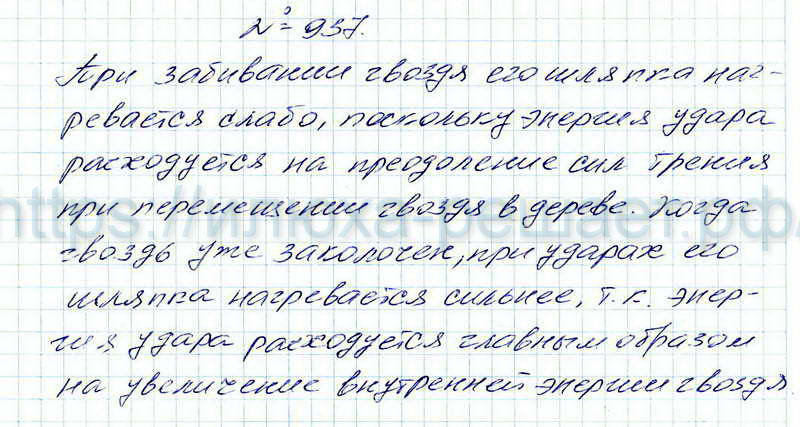 № 937.
При забивании гвоздя его шляпка наг-
ревается слабо, поскольку энергия удара
расходуется на преодоление сил трения
при перемещении гвоздя в дереве. Когда
https://илюха-решает.рф/
гвоздь уже заколочен, при ударах его
шляпка нагревается сильнее, т.к. энер-
гия удара расходуется главным образом
на увеличение внутренней энергии гвоздя